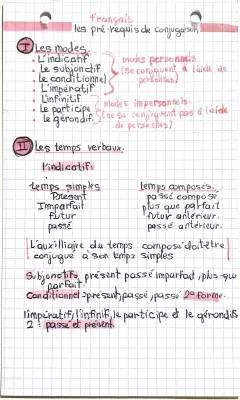 français
les pré-requis de conjugaison
I Les modes
. L'indicatif
. Le subjonctif
. Le conditionnel
. L'impératif
modes personnels
(se conjuguent à l'aide de
personnes)
. L'infinitif
. Le participe
. le gérondif
modes impersonnels
(ne se conjuguent pas à l'aide
de personnes)
II Les temps verbaux.
l'indicatif:
temps simples
Présent
Imparfait
futur
passé
temps composés.
passé composé
plus que parfait
futur antérieur.
passé antérieur.
L'auxilliaire du temps composé doit être
conjugué à son temps simples
Subjonctif: présent passé imparfait, plus-que
parfait.
Conditionnel: présent, passé, passé 2e forme.
l'impératif, l'infinif, le participe et le gérondif
2: passé et présent.